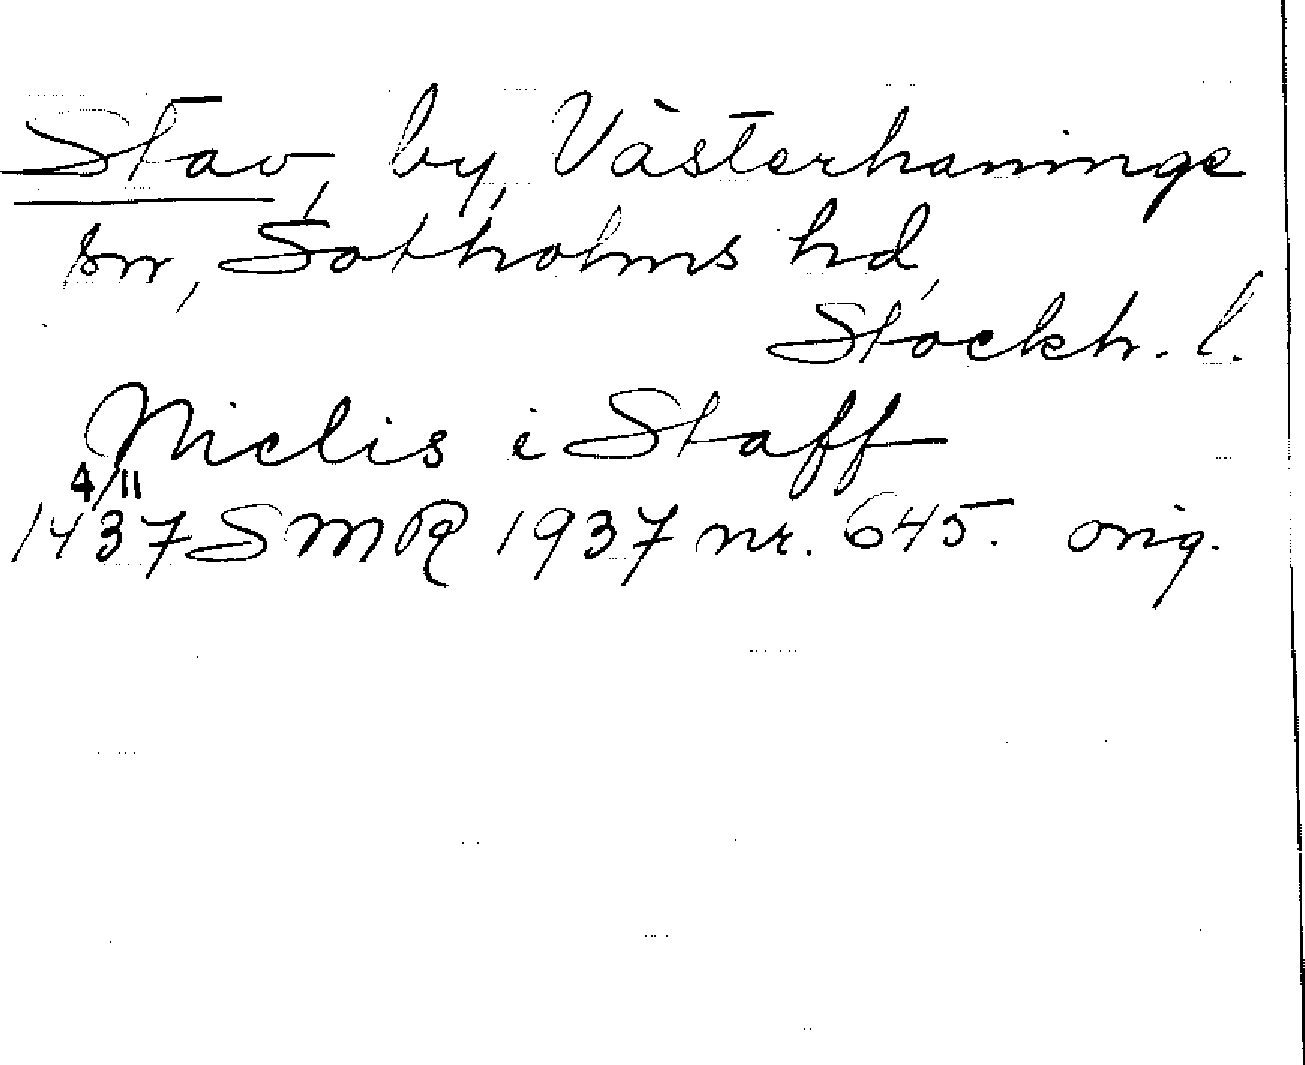 Stav, by, Västerhaninge
sn, Sotholms hd,
Stockh. l.
Niclis i Staff
4/11
1437 SMR 1937 nr. 645. orig.